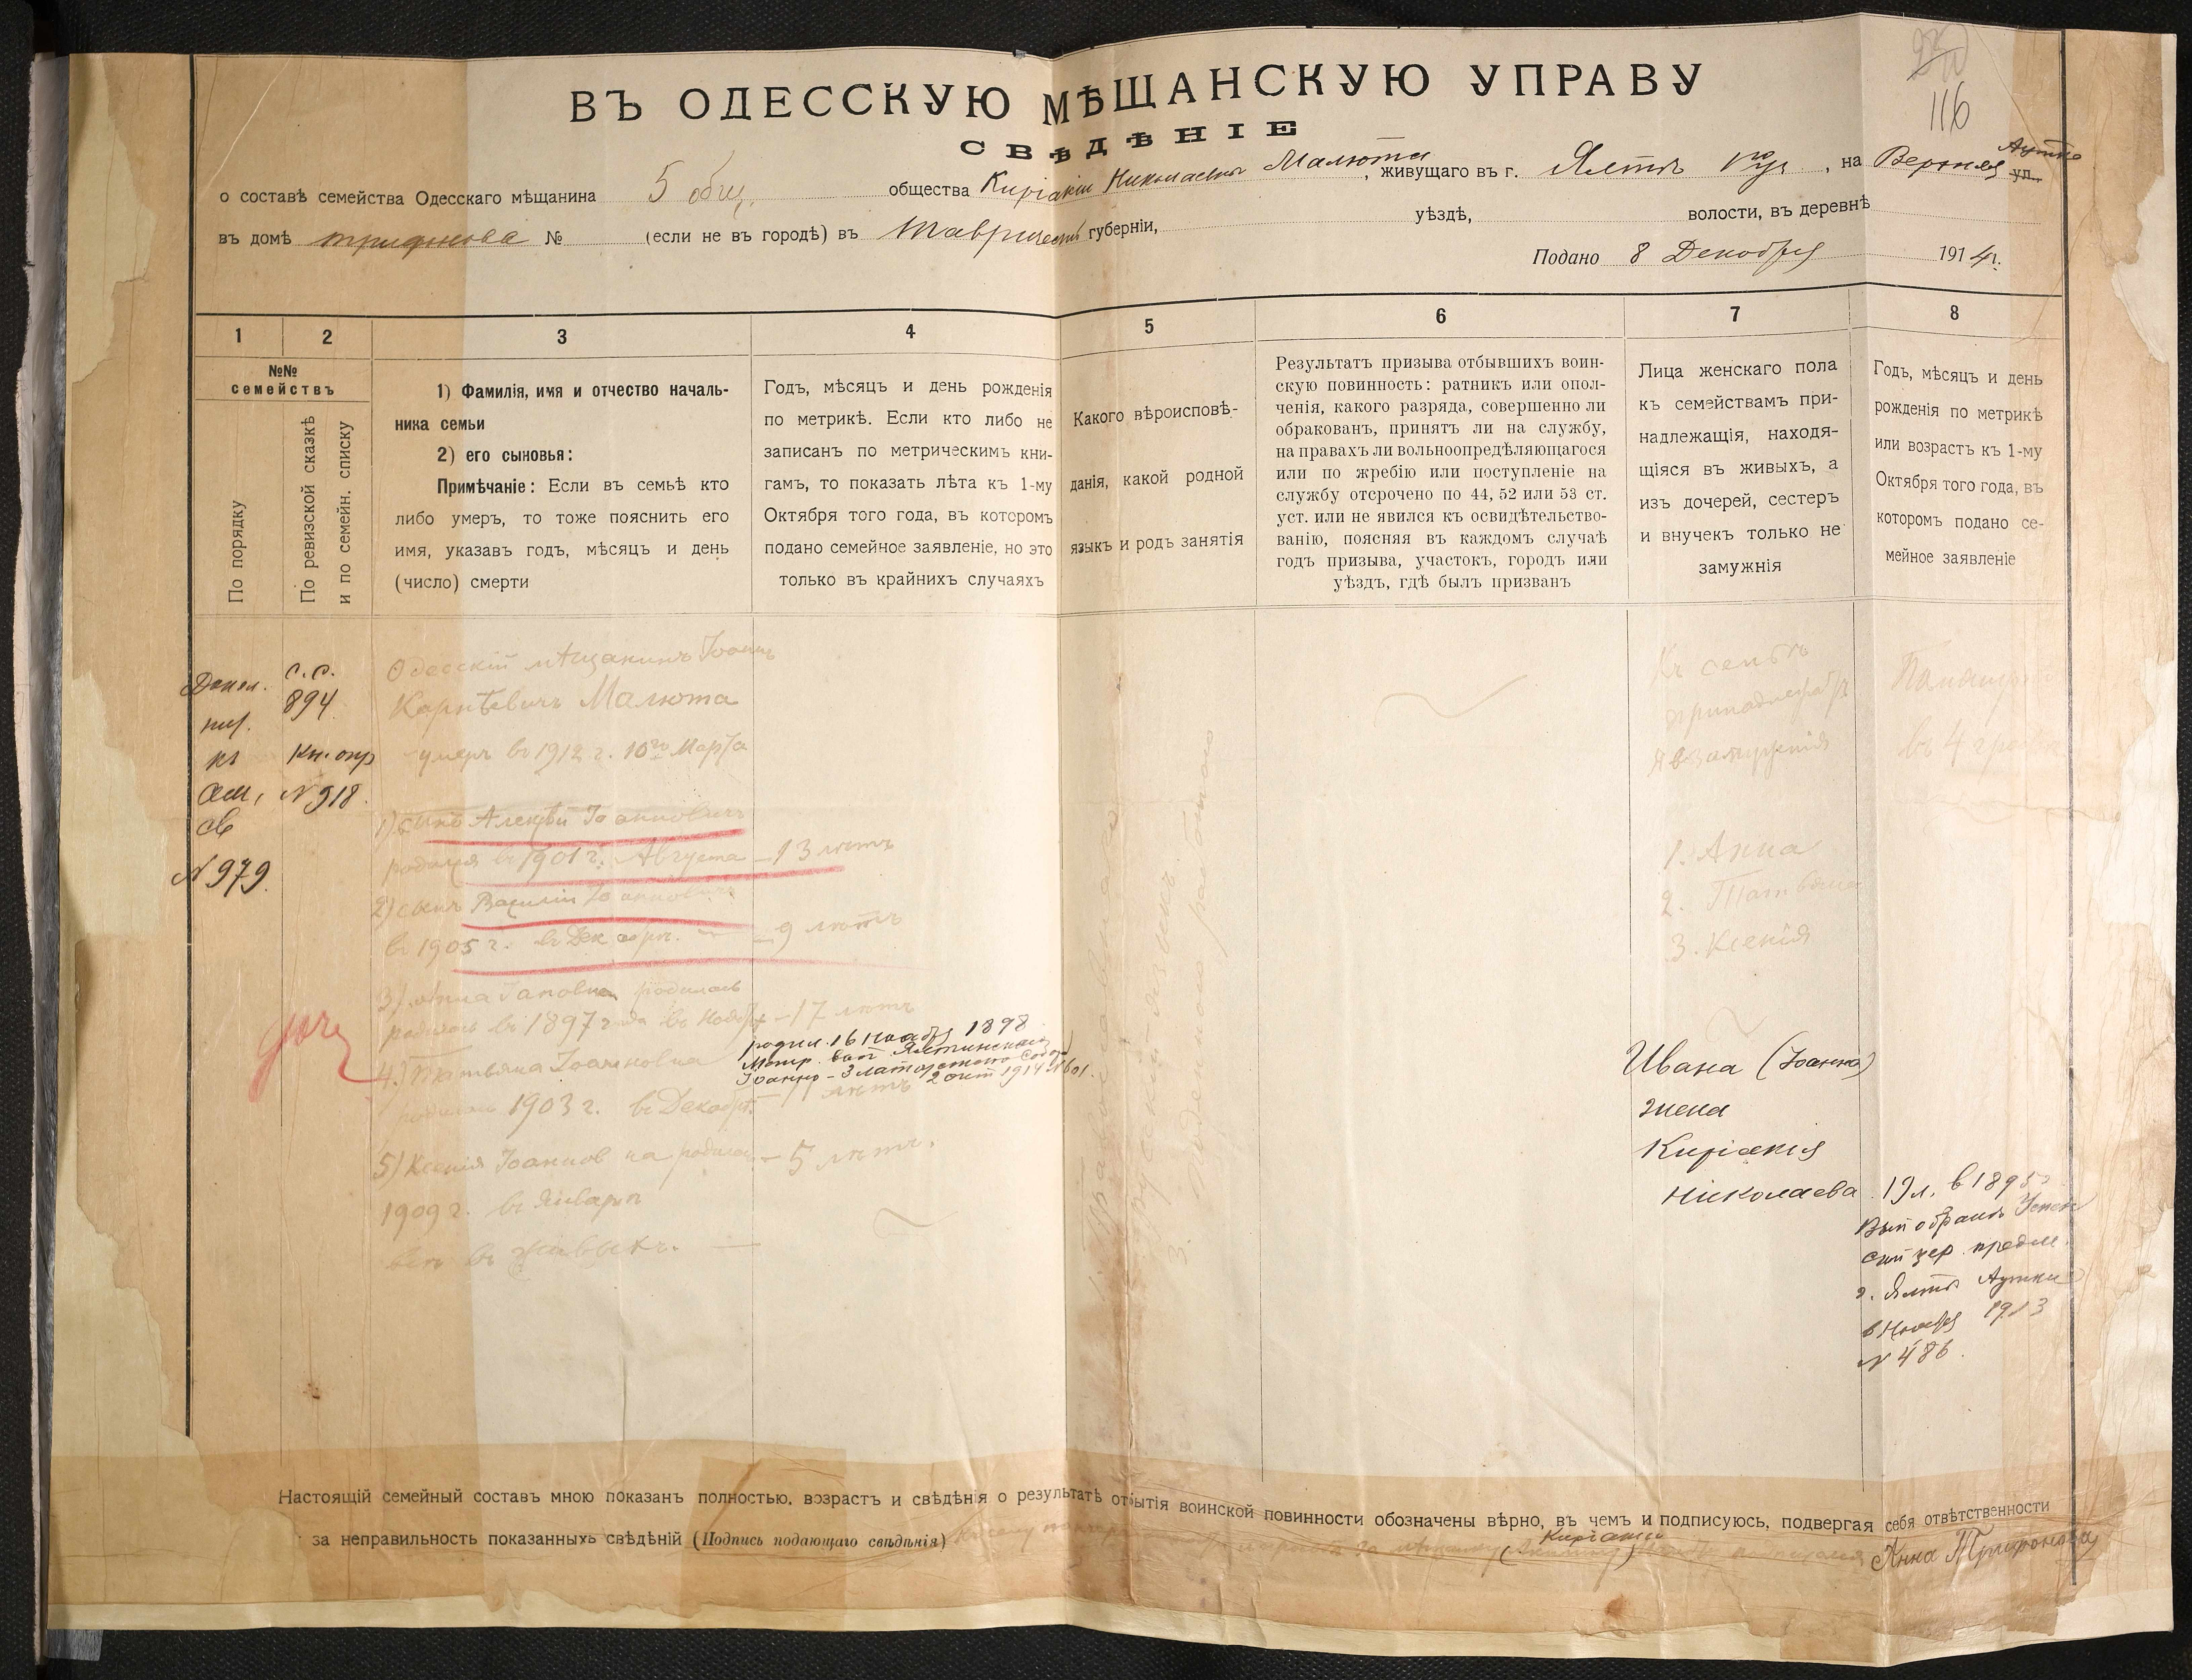 116
ВЪ ОДЕССКУЮ МѢЩАНСКУЮ УПРАВУ
СВѢДѢНІЕ
о составѣ семейства Одесскаго мѣщанина 5 общ. общества Киріакіи Николаевны Малюта, живущаго въ г. Ялтѣ, на Верхняя Аутка ул.
въ домѣ Трифонова № (если не въ городѣ) въ Тавричес губерніи, уѣздѣ, волости, въ деревнѣ
Подано 8 Декабря 1914 г.
1 2 3 4 5 6 7 8
№№ семействъ
По порядку
По ревизской сказкѣ и по семейн. списку
1) Фамилія, имя и отчество началь-
ника семьи
2) его сыновья:
Примѣчаніе: Если въ семьѣ кто
либо умеръ, то тоже пояснить его
имя, указавъ годъ, мѣсяцъ и день
(число) смерти
Годъ, мѣсяцъ и день рожденія
по метрикѣ. Если кто либо не
записанъ по метрическимъ кни-
гамъ, то показать лѣта къ 1-му
Октября того года, въ которомъ
подано семейное заявленіе, но это
только въ крайнихъ случаяхъ
Какого вѣроисповѣ-
данія, какой родной
языкъ и родъ занятія
Результатъ призыва отбывшихъ воин-
скую повинность: ратникъ или опол-
ченія, какого разряда, совершенно ли
обракованъ, принятъ ли на службу,
на правахъ ли вольноопредѣляющагося
или по жребію или поступленіе на
службу отсрочено по 44, 52 или 53 ст.
уст. или не явился къ освидѣтельство-
ванію, поясняя въ каждомъ случаѣ
годъ призыва, участокъ, городъ или
уѣздъ, гдѣ былъ призванъ
Лица женскаго пола
къ семействамъ при-
надлежащія, находя-
щіяся въ живыхъ, а
изъ дочерей, сестеръ
и внучекъ только не
замужнія
Годъ, мѣсяцъ и день
рожденія по метрикѣ
или возрастъ къ 1-му
Октября того года, въ
которомъ подано се-
мейное заявленіе
Допол.
къ
сем.
св
N 979.
с.с.
894
Кн. опр
N 918.
Одесскій мѣщанинъ Іоаннъ
Карпѣевичъ Малюта
умеръ въ 1912 г. 10го Марта
1) сынъ Алексѣй Іоанновичъ
родился въ 1901 г. Августа – 13 лѣтъ
2) сынъ Василій Іоанновичъ
въ 1905 г. въ Декабрѣ. – 9 лѣтъ
3) Анна родилась
родилась въ 1897 года въ Ноябрѣ – 17 лѣтъ
4.) Татьяна Іоанновна
родилась 1903 г. въ Декабрѣ – 11 лѣтъ
5) Ксенія Іоанновна родилась – 5 лѣтъ.
1909 г. въ Январѣ
всѣ въ живыхъ. —
родил. 16 Ноября 1898
Метр. вып Ялтинскаго
Іоанно-Златоустаго Собора
2 окт 1914 N 601.
1. Православнаго
2. русскій языкъ
3. Поденною работаю
Къ семьѣ
принадлежатъ
1. Анна
2. Татьяна
3. Ксенія
Ивана (Іоанна)
жена
Киріакія
Николаева
19 л. в 1895
Вып о бракѣ Успен
ской цер. предм.
г. Ялты Аутки
в Ноября 1913
N 486.
Настоящій семейный составъ мною показанъ полностью, возрастъ и свѣдѣнія о результатѣ отбытія воинской повинности обозначены вѣрно, въ чемъ и подписуюсь, подвергая себя отвѣтственности
за неправильность показанныхъ свѣдѣній (Подпись подающаго свѣдѣнія)
Киріакію
Анна Трифонова